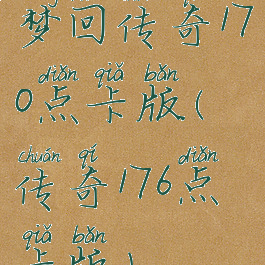 梦回传奇17
diǎn qiǎ bǎn
0点卡版(
chuán qí diǎn
传奇176点
qiǎ bǎn
卡版)